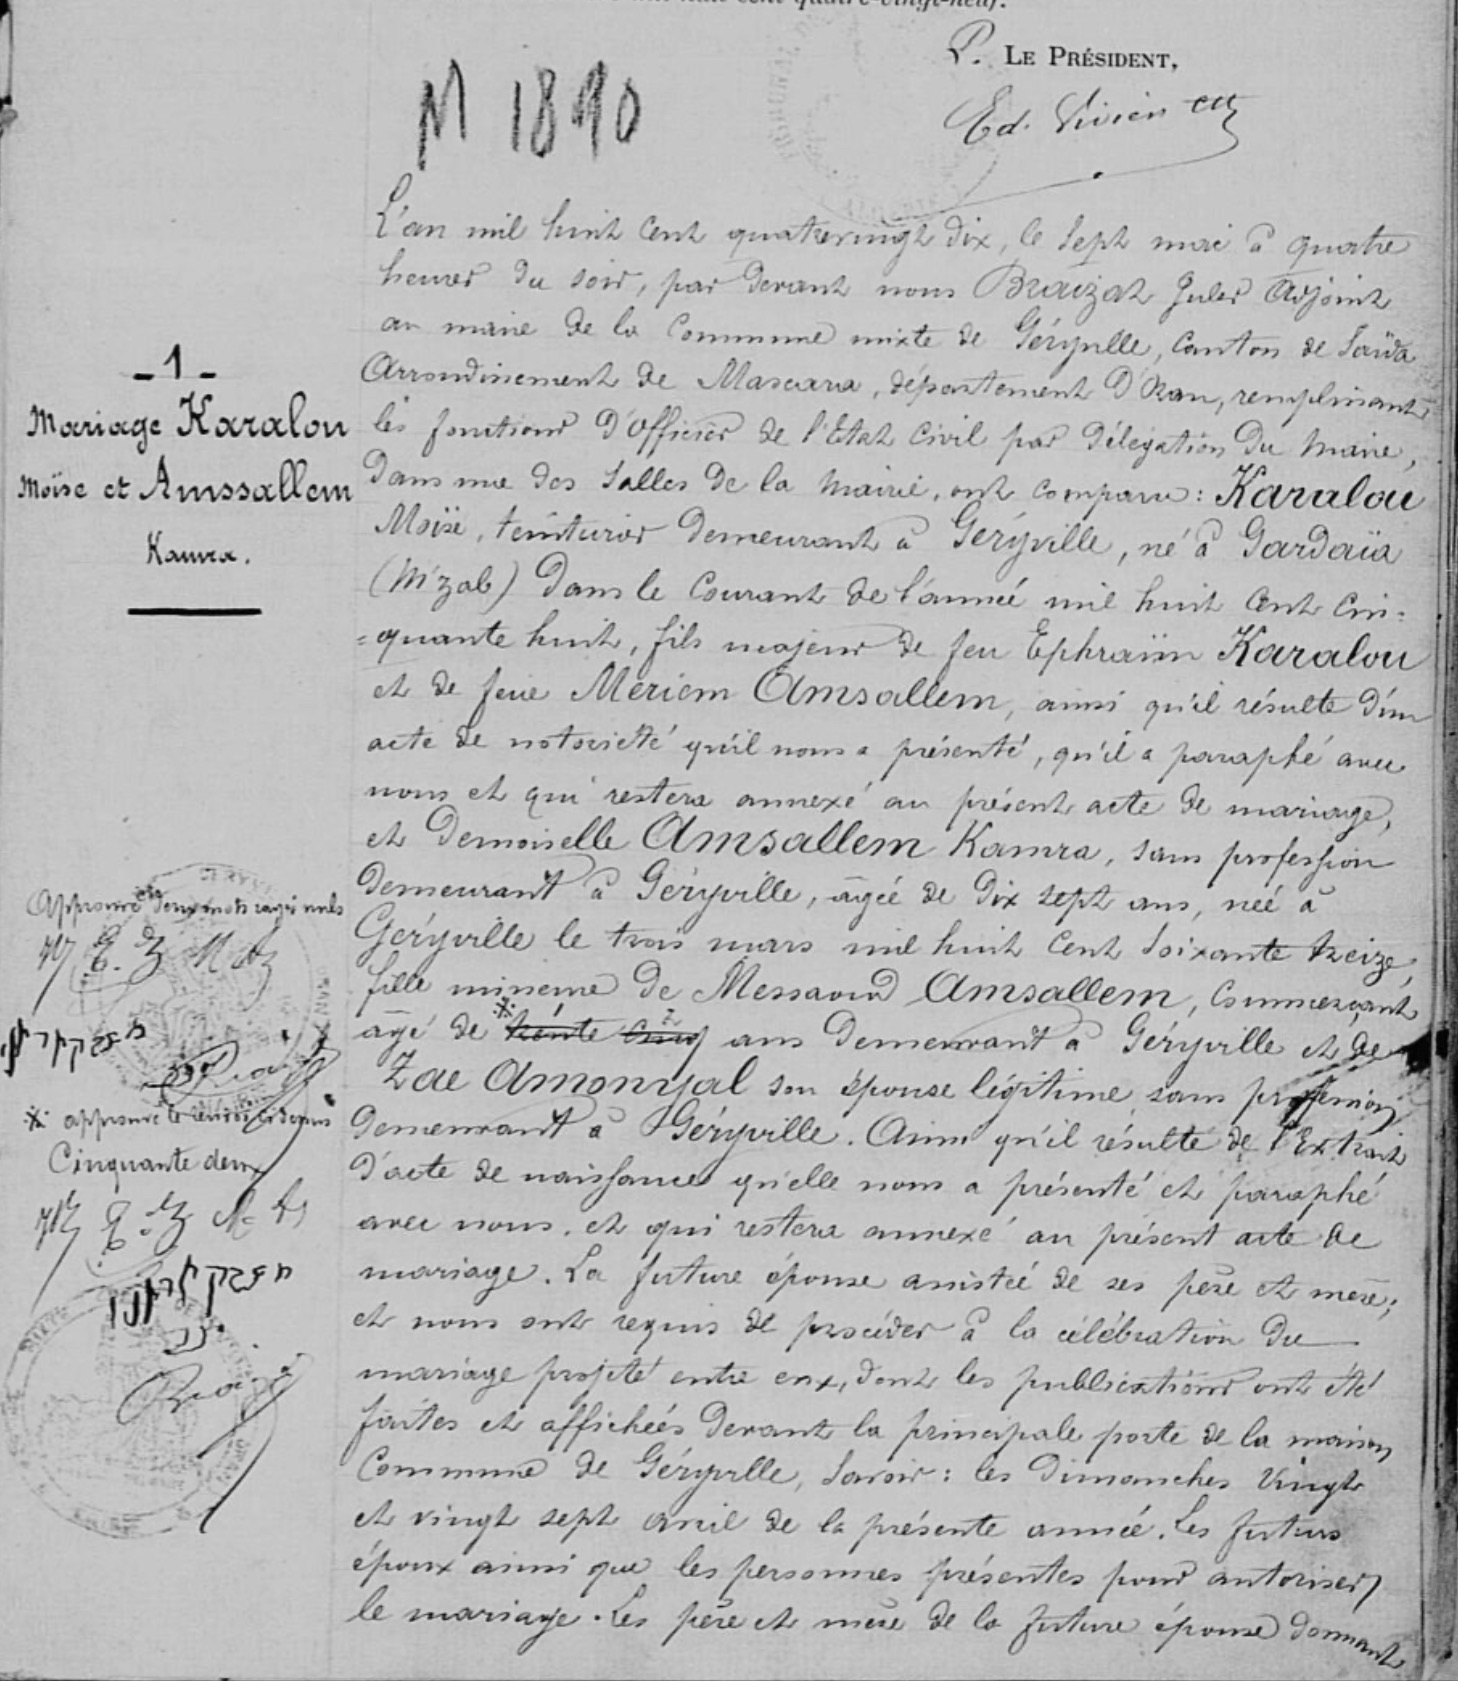 mil huit cent quatre-vingt-neuf.
P. LE PRÉSIDENT,
Ed. Vivien
M 1890
- 1 -
Mariage Karalou
Moïse et Amssallem
Kamra.
L'an mil huit cent quatrevingt dix, le sept mai à quatre
heures du soir, par devant nous Braizat Jules Adjoint
au maire de la Commune mixte de Géryville, Canton de Saïda
Arrondissement de Mascara, département d'Oran, remplissant
les fonctions d'Officier de l'Etat Civil par délégation du Maire,
dans une des Salles de la Mairie, ont comparu : Karalou
Moïse, teinturier demeurant à Géryville, né à Gardaïa
(M'zab) dans le Courant de l'année mil huit Cent Cin-
=quante huit, fils majeur de feu Ephraïm Karalou
et de feue Meriem Amsallem, ainsi qu'il résulte d'un
acte de notoriété qu'il nous a présenté, qu'il a paraphé avec
nous et qui restera annexé au présent acte de mariage,
et Demoiselle Amsallem Kamra, sans profession
demeurant à Géryville, âgée de dix sept ans, née à
Géryville le trois mars mil huit Cent Soixante treize,
fille mineure de Messaoud Amsallem, Commerçant
âgé de trente cinq ans demeurant à Géryville et de
Zae Amonyal son épouse légitime, sans profession
demeurant à Géryville. Ainsi qu'il résulte de l'Extrait
d'acte de naissance qu'elle nous a présenté et paraphé
avec nous, et qui restera annexé au présent acte de
mariage. La future épouse assistée de ses père et mère ;
et nous ont requis de procéder à la célébration du
mariage projeté entre eux, dont les publications ont été
faites et affichées devant la principale porte de la maison
Commune de Géryville, Savoir : les Dimanches Vingt
et vingt sept avril de la présente année. Les futurs
époux ainsi que les personnes présentes pour autoriser
le mariage. Les père et mère de la future épouse donnant
Approuvé deux mots rayés nuls
approuvé le renvoi ci dessus
Cinquante deux